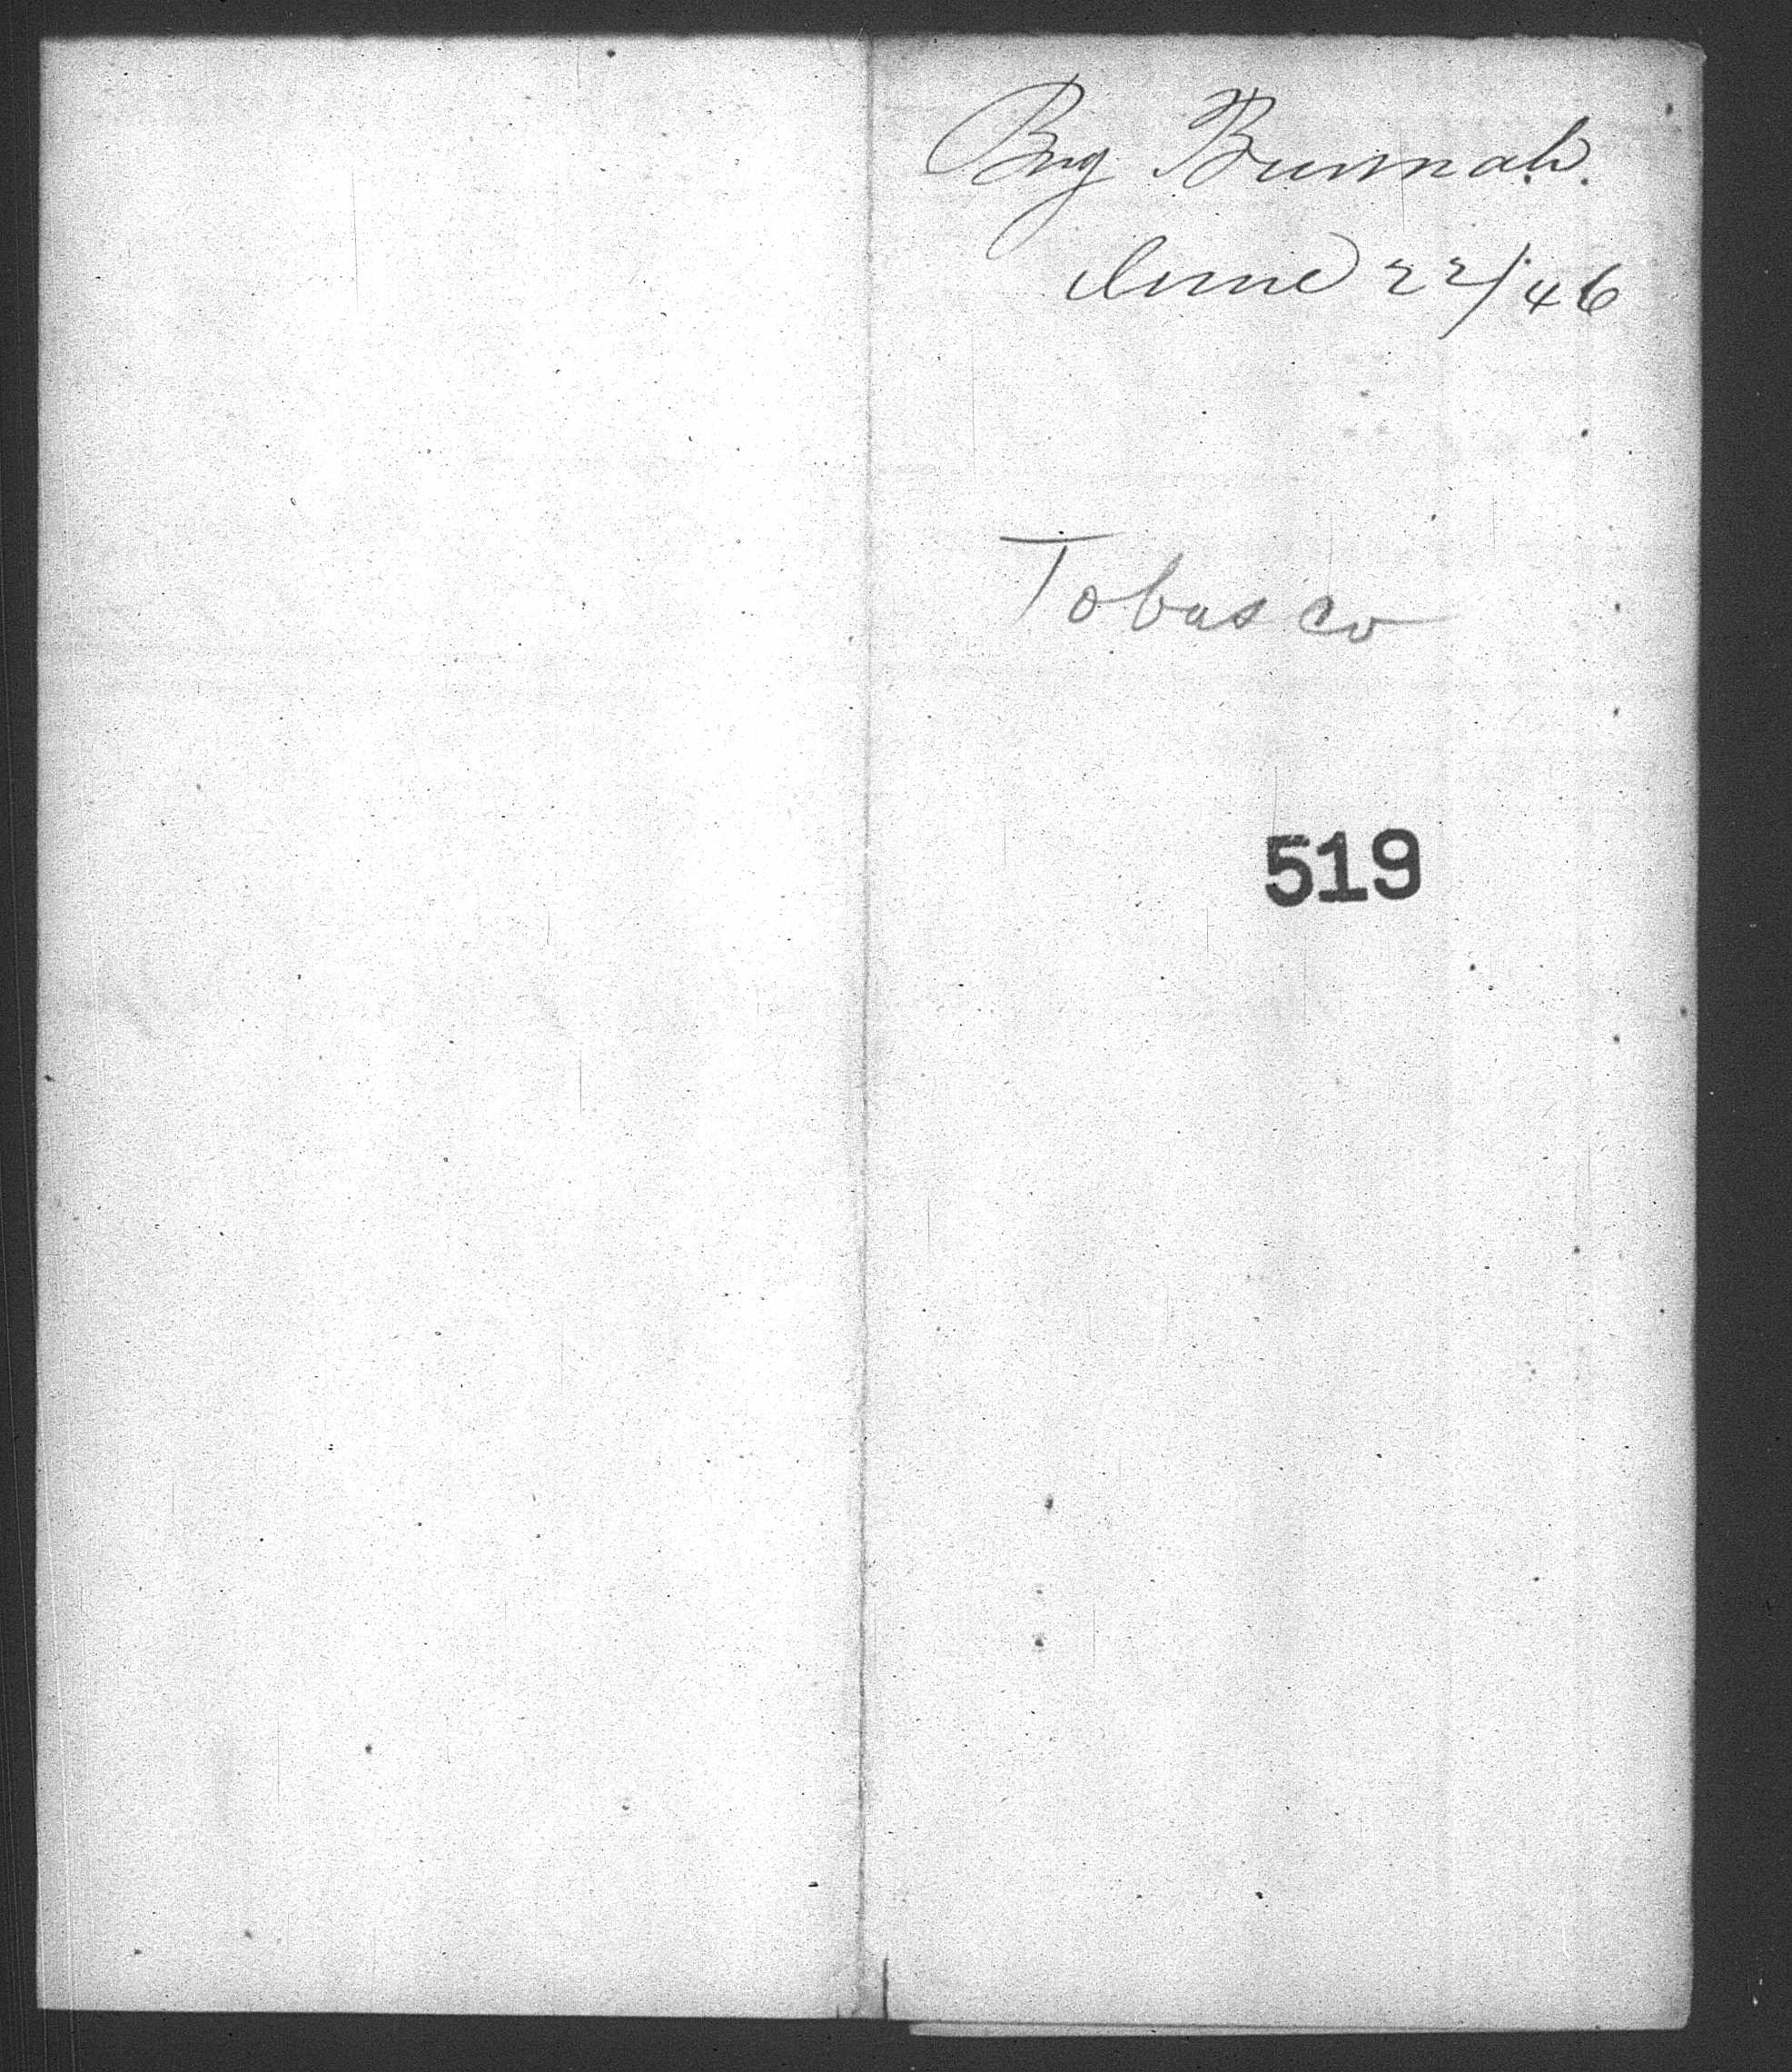 Brig Burmah.
June 22/46
Tobasco
519